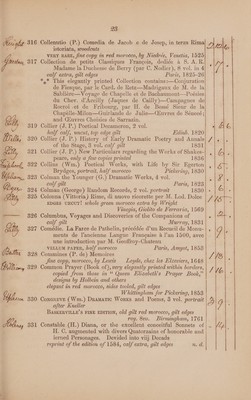 23
316 Collenutio (P.) Comedia de Jacob e de Josep, in terza Rima
istoriata, woodcuts
VERY RARE, fine copy in red morocco, by Niedrée. Venetia, 1525
317 Collection de petits Classiques François, dediée à S. A. R.
Madame la Duchesse de Berry (par C. Nodier), 8 vol. in 4
calf extra, gilt edges Paris, 1825-26
*** This elegantly printed Collection contains:—Conjuration
de Fiesque, par le Card. de Retz—Madrigaux de M. de la
Sablière—Voyage de Chapelle et de Bachaumont—Poésies
du Chev. d'Aceilly (Jaques de Cailly)—Campagnes de
Rocroi et de Fribourg, par H. de Bessé Sieur de la
Chapelle-Milon—Guirlande de Julie—Œuvres de Sénecé;
and Œuvres Choisies de Sarrasin.
319 Collier (J. P.) Poetical Decameron, 2 vol.
half calf, uncut, top edges gilt Edinb. 1820
320 Collier (J. P.) History of Early Dramatic Poetry and Annals
of the Stage, 3 vol. calf gilt 1831
321 Collier (J. P.) New Particulars regarding the Works of Shakes-
peare, only a few copies printed 1836
322 Collins (Wm.) Poetical Works, with Life by Sir Egerton
Brydges, portrait, half morocco Pickering, 1830
323 Colman the Younger (G.) Dramatic Works, 4 vol.
calf gilt Paris, 1823
324 Colman (George) Random Records, 2 vol. portrait 1830
325 Colonna (Vittoria) Rime, di nuovo ricorrette per M. Lod. Dolce
RUSSIA EXTRA; whole green morocco extra by Wright
Vinegia, Giolito de Ferrari, 1560
326 Columbus, Voyages and Discoveries of the Companions of
calf gilt Murray, 1831
327 Comédie. La Farce de Pathelin, précédée d'un Recueil de Monu-
ments de l'ancienne Langue Française à l'an 1500, avec
une introduction par M. Geoffroy-Chateau
VELLUM PAPER, half morocco Paris, Amyot, 1853
328 Commines (P. de) Memoires
fine copy, morocco, by Lewis Leyde, chez les Elzeviers, 1648
329 Common Prayer (Book of), very elegantly printed within borders,
copied from those in "Queen Elizabeth's Prayer Book,"
designs by Holbein and others
elegant in red morocco, mitre tooled, gilt edges
Whittingham for Pickering, 1853
330 CONGREVE (WM.) DRAMATIC WORKS and Poems, 3 vol. portrait
after Kneller
BASKERVILLE'S FINE EDITION, old gilt red morocco, gilt edges
roy. 8vo. Birmingham, 1761
331 Constable (H.) Diana, or the excellent conceitful Sonnets of
H. C. augmented with divers Quatorzains of honorable and
lerned Personages. Devided into viij Decads
reprint of the edition of 1584, calf extra, gilt edges n. d.